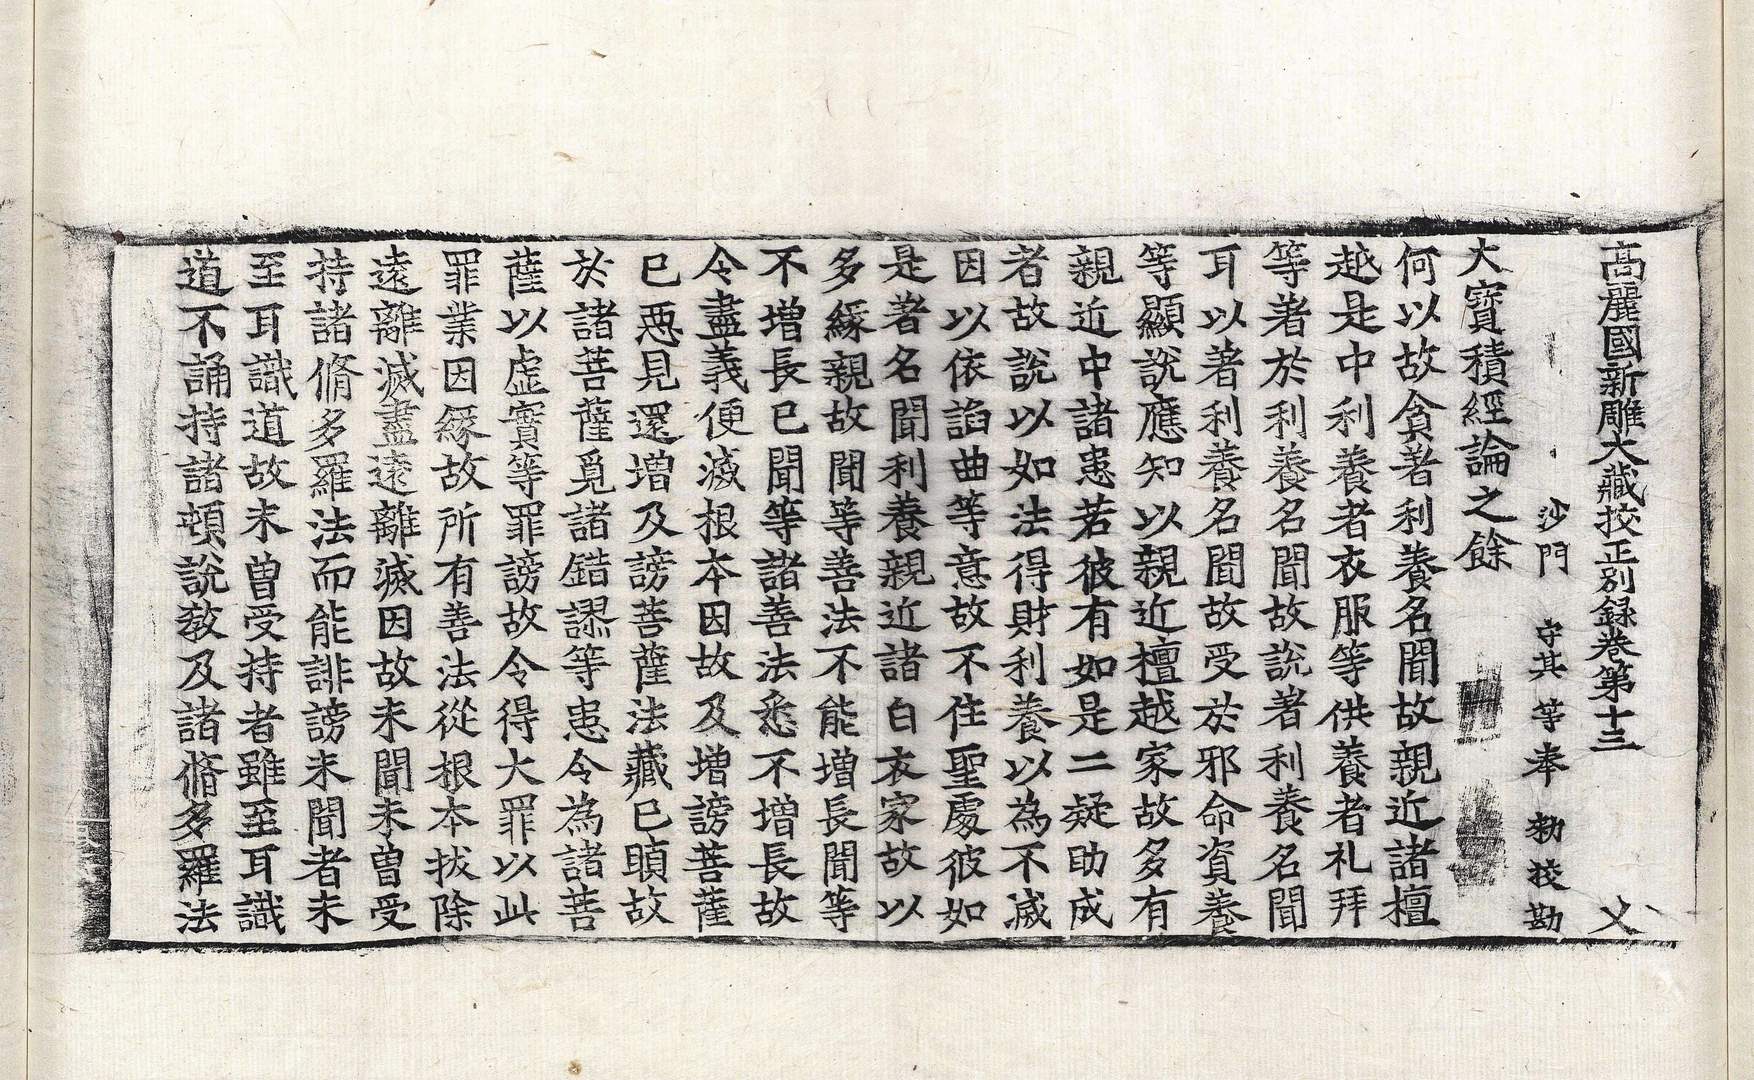 高麗國新雕大藏挍正別録卷第十三 乂
沙門 守其等奉 勅挍勘
大寶積經論之餘
何以故貪著利養名聞故親近諸檀
越是中利養者衣服等供養者礼拜
等著於利養名聞故說著利養名聞
耳以著利養名聞故受於邪命資養
等顯說應知以親近檀越家故多有
親近中諸恚若彼有如是二疑助成
者故說以如法得財利養以為不滅
因以依諂曲等意故不住聖處彼如
是著名聞利養親近諸白衣家故以
多緣親故聞等善法不能增長聞等
不增長已聞等諸善法悉不增長故
令盡義便滅根本因故及增謗菩薩
已惡見還增及謗菩薩法藏已頥故
於諸菩薩覓諸錯謬等恚令為諸菩
薩以虛實等罪謗故令得大罪以此
罪業因緣故所有善法從根本拔除
遠離滅盡遠離滅因故未聞未曾受
持諸脩多羅法而能誹謗未聞者未
至耳識道故未曾受持者雖至耳識
道不誦持諸頓說教及諸脩多羅法